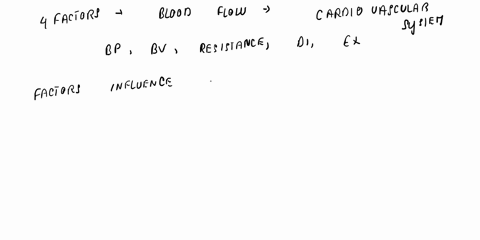 4 FACTORS → BLOOD FLOW → CARDIO VASCULAR SYSTEM
BP, BV, RESISTANCE, DI, EX
FACTORS INFLUENCE